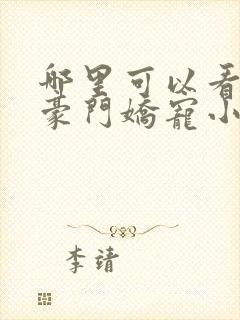 哪里可以看
豪门嬌寵小
李靖